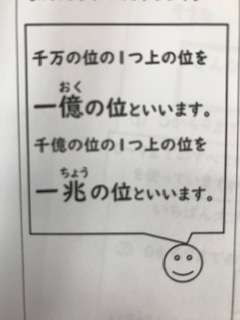 千万の位の1つ上の位を
おく
一億の位といいます。
千億の位の1つ上の位を
ちょう
一兆の位といいます。